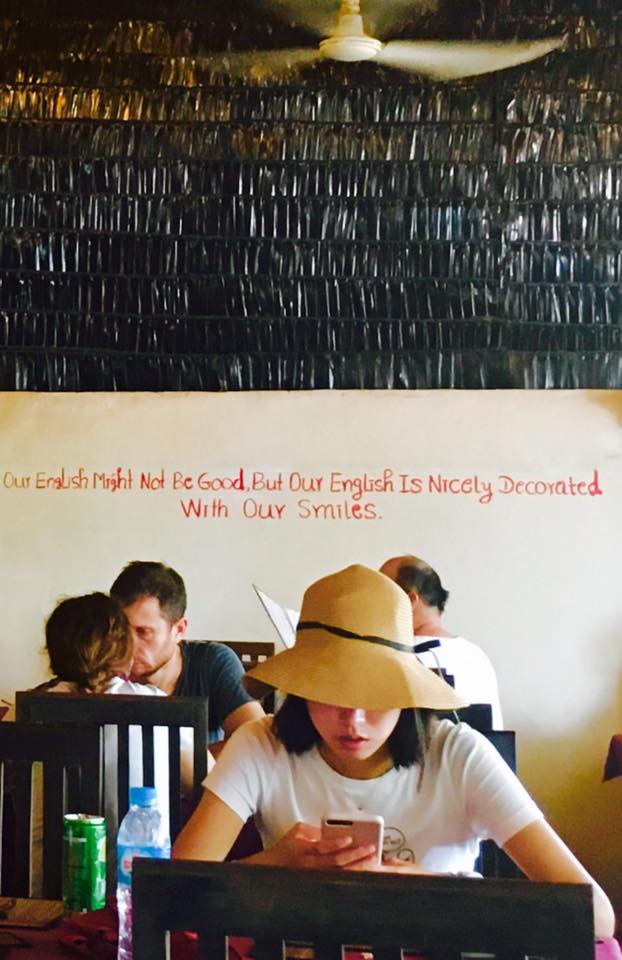 Our English Might Not Be Good, But Our English Is Nicely Decorated
With Our Smiles.